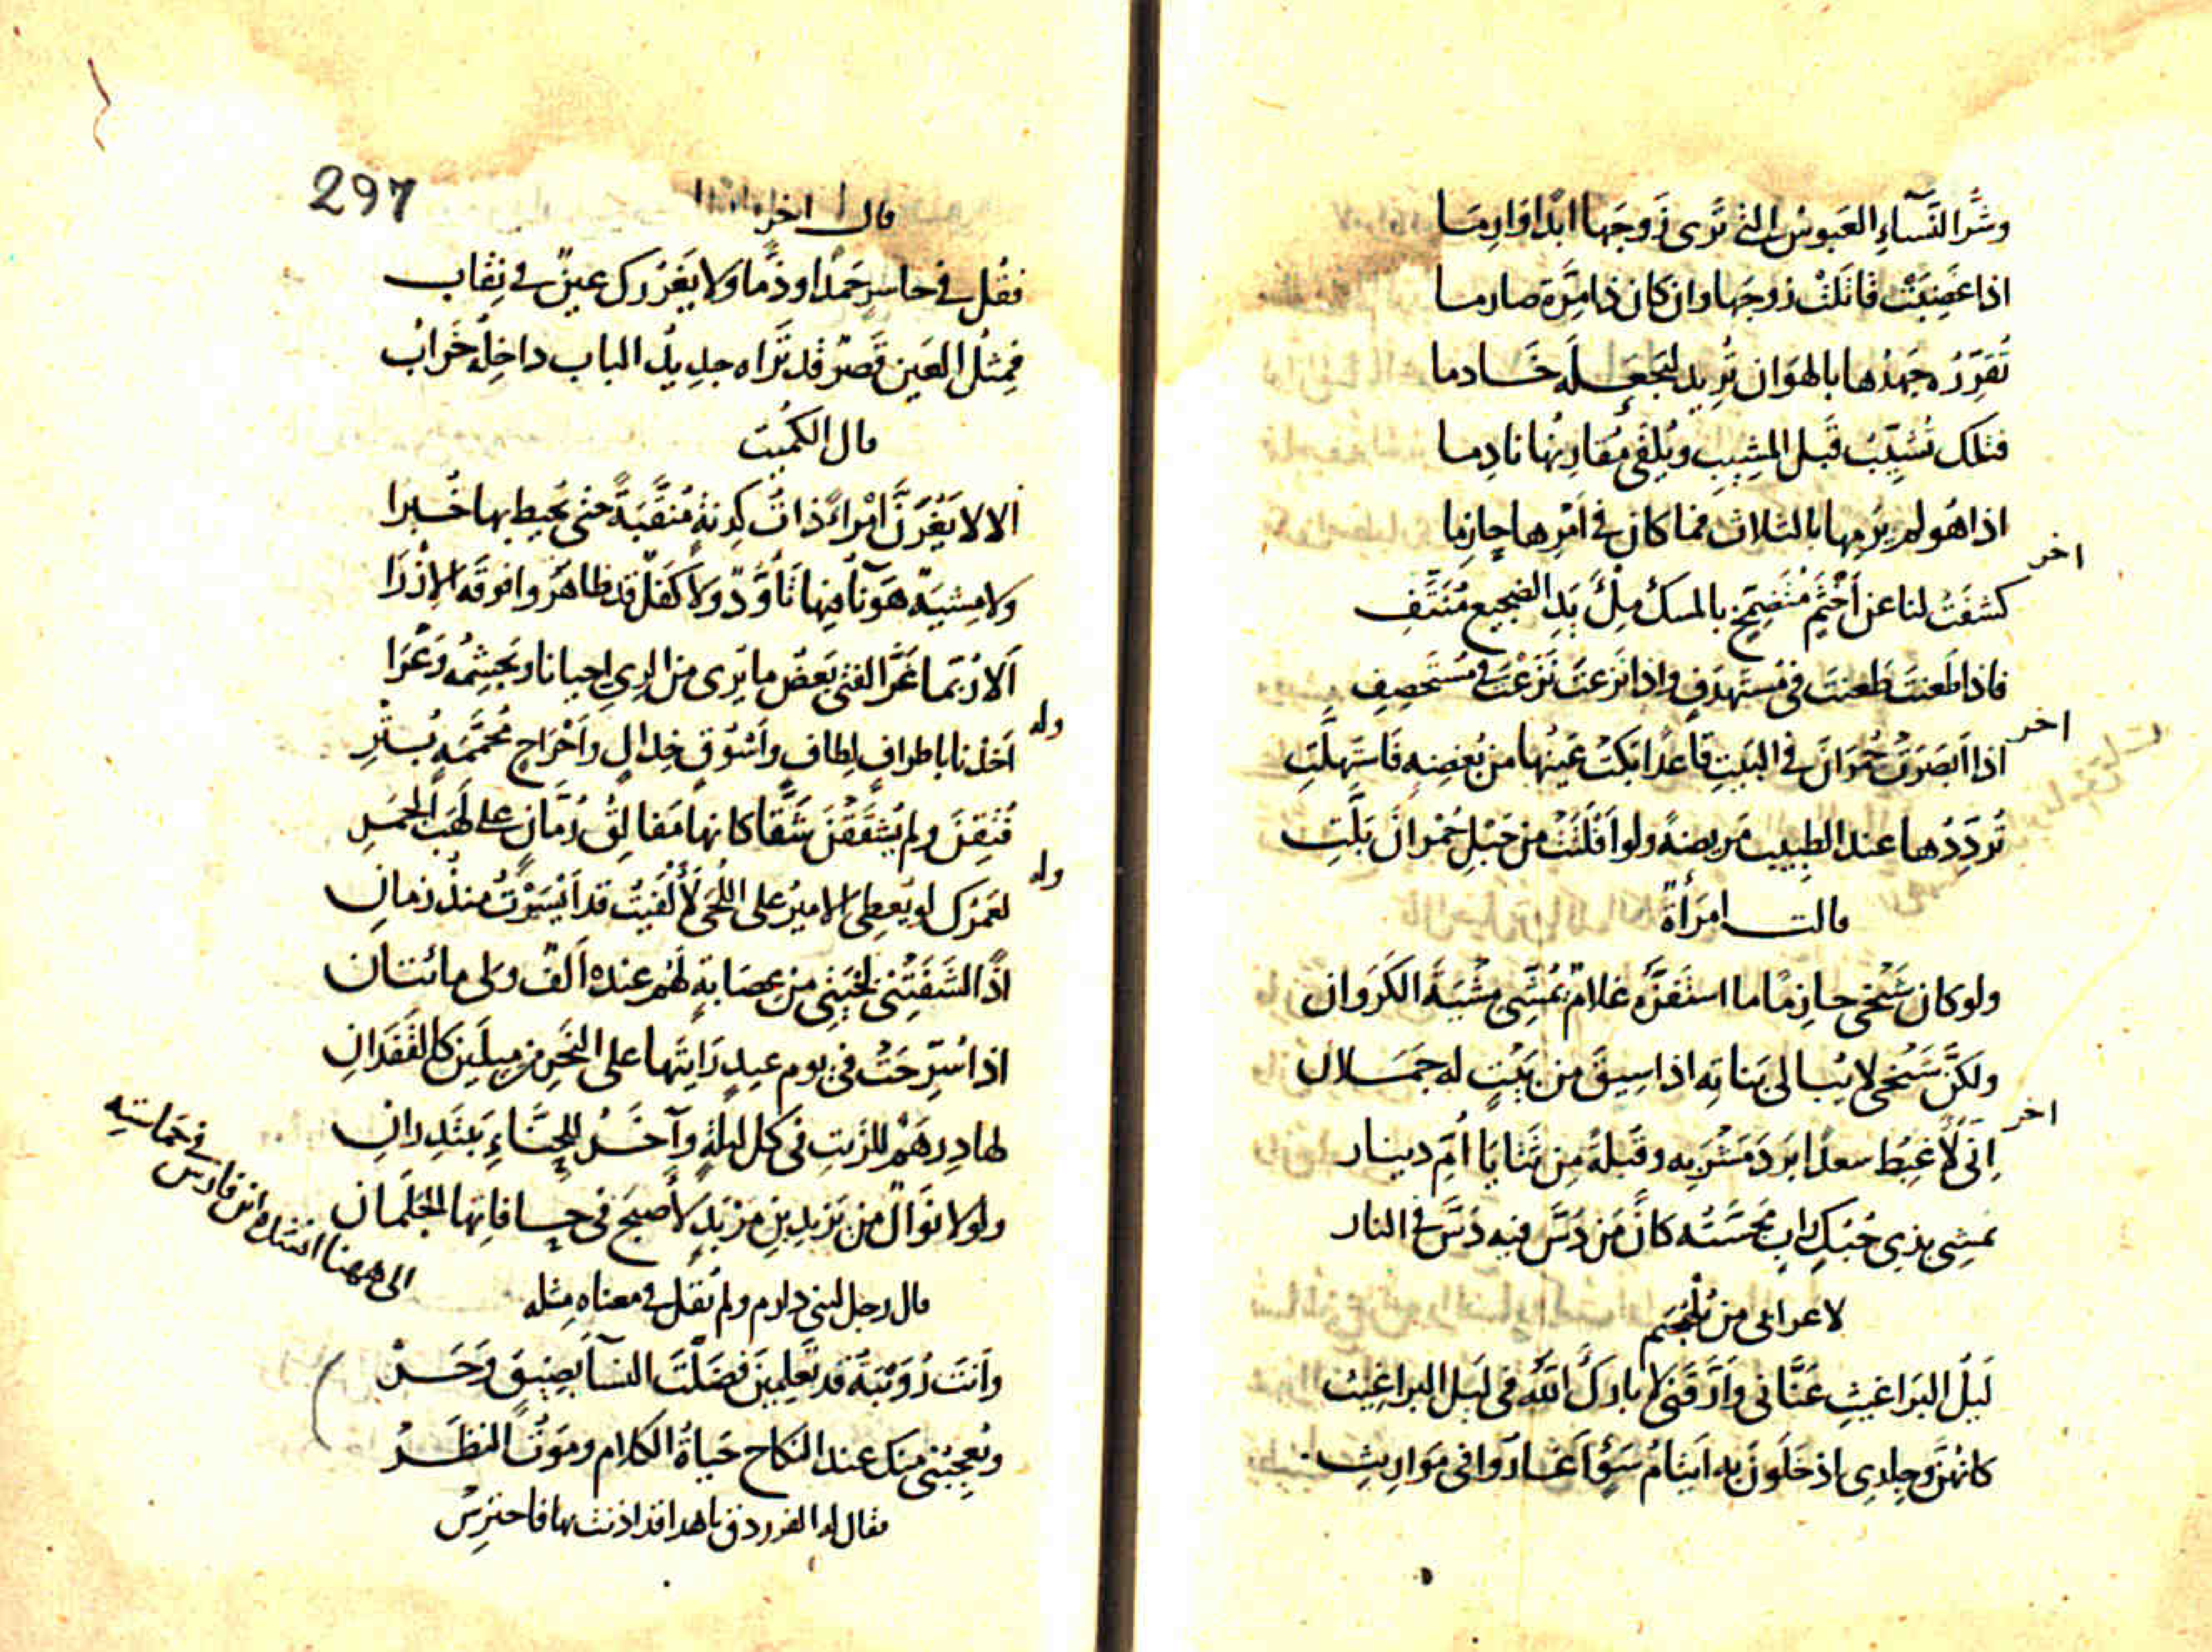 وشَرُّ النِّسآءِ العَبوسُ التى تَرى زَوجَها ابدًا وَارِمَا
اذا غَضِبَتْ قاتَلَتْ زوجَها وان كان ذا مِرَّة صارما
تُقَرِّرُه جَهدُها بالهَوَان تُرِيد لتَجعِلَه خَادما
فتلك تُشَيِّبُ قَبل المشِيبِ ويُلفَى مُقارِنُها نادِما
اذا هُو لم يَرمِها بالثلاث فما كان فى اَمْرِها حازِما
اخر
كشفَتْ لنا عن اَخْثَمٍ مُتَضِمّخٍ بالمسك مِلْ يَدِ الضجيع مُنَتَّفِ
فاذا طَعنتَ طَعنتَ فى مُستَهدَفٍ واذا نَزعتَ نَزَعْتَ فى مُستَحصِفِ
اخر
اذا اَبصَرَتْ حُمرَانَ فى البَيتِ قاعدًا بَكَتْ عَينُها من بُغضِه فَاستَهلَّتِ
تُرَدِّدُها عند الطبِيب مَريضةً ولو اَفلَتَتْ من حَبْلِ حُمْرانَ بَلَّتِ
قالت امرَأةٌ
ولو كان شَيْخى حازِمًا ما استَفزَّه غلامٌ يُمَشِّى مِشْيَةَ الكَرَوانِ
ولكنَّ شَيْخى لا يُبالى بَناتِه اذا سِيقَ من بَيْتٍ له جَمَلانِ
اخر
اِنّى لَأَغبِطُ سعدًا بَردَ مَشْرَبِه وقُبلةً مِن ثَنَايَا اُمّ دينار
تمشِى بذى حُبُكٍ رابٍ مَجَسَّتُه كانَّ مَن دُسَّ فيه دُسَّ فى النار
لاعرابى من بَلْهُجَيم
لَيلُ البَراغيثِ عَنَّانى وَاَرَّقَنى لا بارَكَ اللّٰه فى لَيل البراغِيث
كانهُنَّ وجِلدِى اذ خَلَونَ به اَيتامُ سَوْءٍ اَغَارُوا فى مَوارِيثِ
297
قال اخر
فقُل فى حاسرٍ حَمدًا وذَمّا ولا يَغرُركَ عينٌ فى نِقاب
فمِثلُ العَين قَصرٌ قد تَراه جديدُ الباب داخِلُه خَرابُ
قال الكُمَيت
الا لا يَغُرّنَّ امْرَاءً ذاتُ كِدنةٍ مُنَقَّبَةً حتى يُحِيط بها خُبرا
ولا مِشيَةٌ هَونًا مِنها تأوُّدٌ ولا كَفَلٌ قد ظاهَروا فوقَه الاُزْرَا
اَلا رُبّما غَرَّ الفتَى بَعضُ ما يَرى من الزِىِ احيانا ويُجشِمُه وَعْرَا
وله
اَخذنا باطرافٍ لِطافٍ واَسْوُقٍ خِدالٍ واَحْرَاحٍ مُحَمَّمَه بُسْرِ
نُتِفنَ ولم يُشقَقْنَ شَقًّا كانها مَفالِقُ رُمّانٍ على لَهَب الجَمرِ
وله
لعَمرُكَ لو يُعطِى الامِيرُ على اللُّحَى لَأُلْفِيتُ قد اَيْسَرْتُ منذُ زمانِ
اذًا لشَفَتنى لحيَتِى مِن عِصَابةٍ لَهُم عنده اَلفٌ ولى مائتان
اذا سُرِّحَتْ فى يوم عيدٍ رَاَيتَها على النَّحرِ مِن مِيلَين كالقَفَدانِ
لها دِرهَمٌ للزَيتِ فى كل ليلةٍ وآخَرُ للحِنّاءِ يَبتَدِرانِ
ولولا نَوالٌ من يَزيدِ بنِ مَزيَدٍ لَأصبَحَ فى حافاتِها الجَلَمانِ
الى ههنا انشده ابن فارس فى حماسته
قال رجل لبنى دارم ولم يُقل فى معناه مِثله
واَنتِ رُوَيْبَةُ قد تَعلِمينَ فَضَلْتِ النسآءَ بضِيقٍ وَحَرّ
وتُعجِبُنى مِنكِ عند النكاح حَياةُ الكلام ومَوتُ النظَر
فقال له الفرزدق يا هذا قد اذنت بها فاحترِسْ